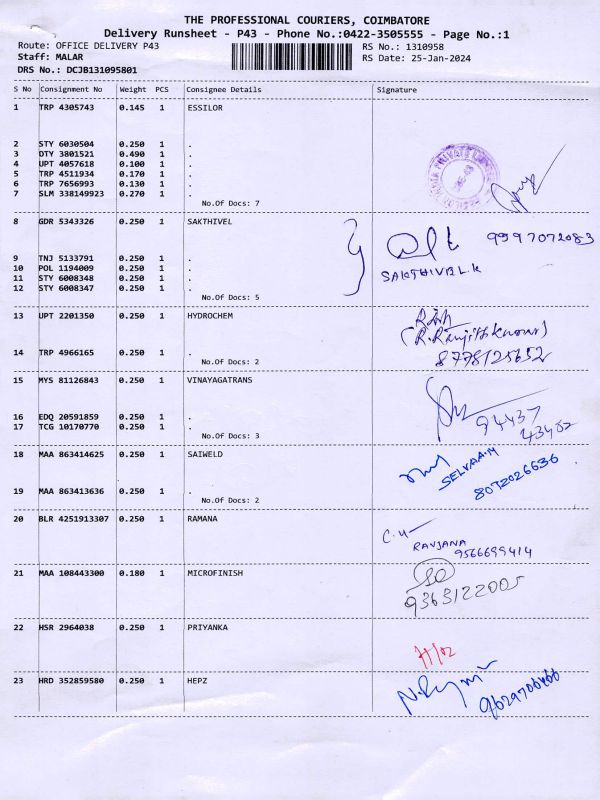 THE PROFESSIONAL COURIERS, COIMBATORE
Delivery Runsheet - P43 - Phone No.:0422-3505555 - Page No.:1
Route: OFFICE DELIVERY P43 RS No.: 1310958
Staff: MALAR RS Date: 25-Jan-2024
DRS No.: DCJB131095801
S No Consignment No Weight PCS Consignee Details Signature
1 TRP 4305743 0.145 1 ESSILOR
2 STY 6030504 0.250 1 .
3 DTY 3801521 0.490 1 .
4 UPT 4057618 0.100 1 .
5 TRP 4511934 0.170 1 .
6 TRP 7656993 0.130 1 .
7 SLM 338149923 0.270 1 .
No.Of Docs: 7
8 GDR 5343326 0.250 1 SAKTHIVEL 9597072083
SAKTHIVEL.K
9 TNJ 5133791 0.250 1 .
10 POL 1194009 0.250 1 .
11 STY 6008348 0.250 1 .
12 STY 6008347 0.250 1 .
No.Of Docs: 5
13 UPT 2201350 0.250 1 HYDROCHEM
(R.Ranjith kumar)
14 TRP 4966165 0.250 1 .
8778125652
No.Of Docs: 2
15 MYS 81126843 0.250 1 VINAYAGATRANS
16 EDQ 20591859 0.250 1 . 94437
17 TCG 10170770 0.250 1 . 43402
No.Of Docs: 3
18 MAA 863414625 0.250 1 SAIWELD
SELVAA.M
8072026636
19 MAA 863413636 0.250 1 .
No.Of Docs: 2
20 BLR 4251913307 0.250 1 RAMANA
RANJANA
9566699414
21 MAA 108443300 0.180 1 MICROFINISH
9363122005
22 HSR 2964038 0.250 1 PRIYANKA
23 HRD 352859580 0.250 1 HEPZ
9629706466